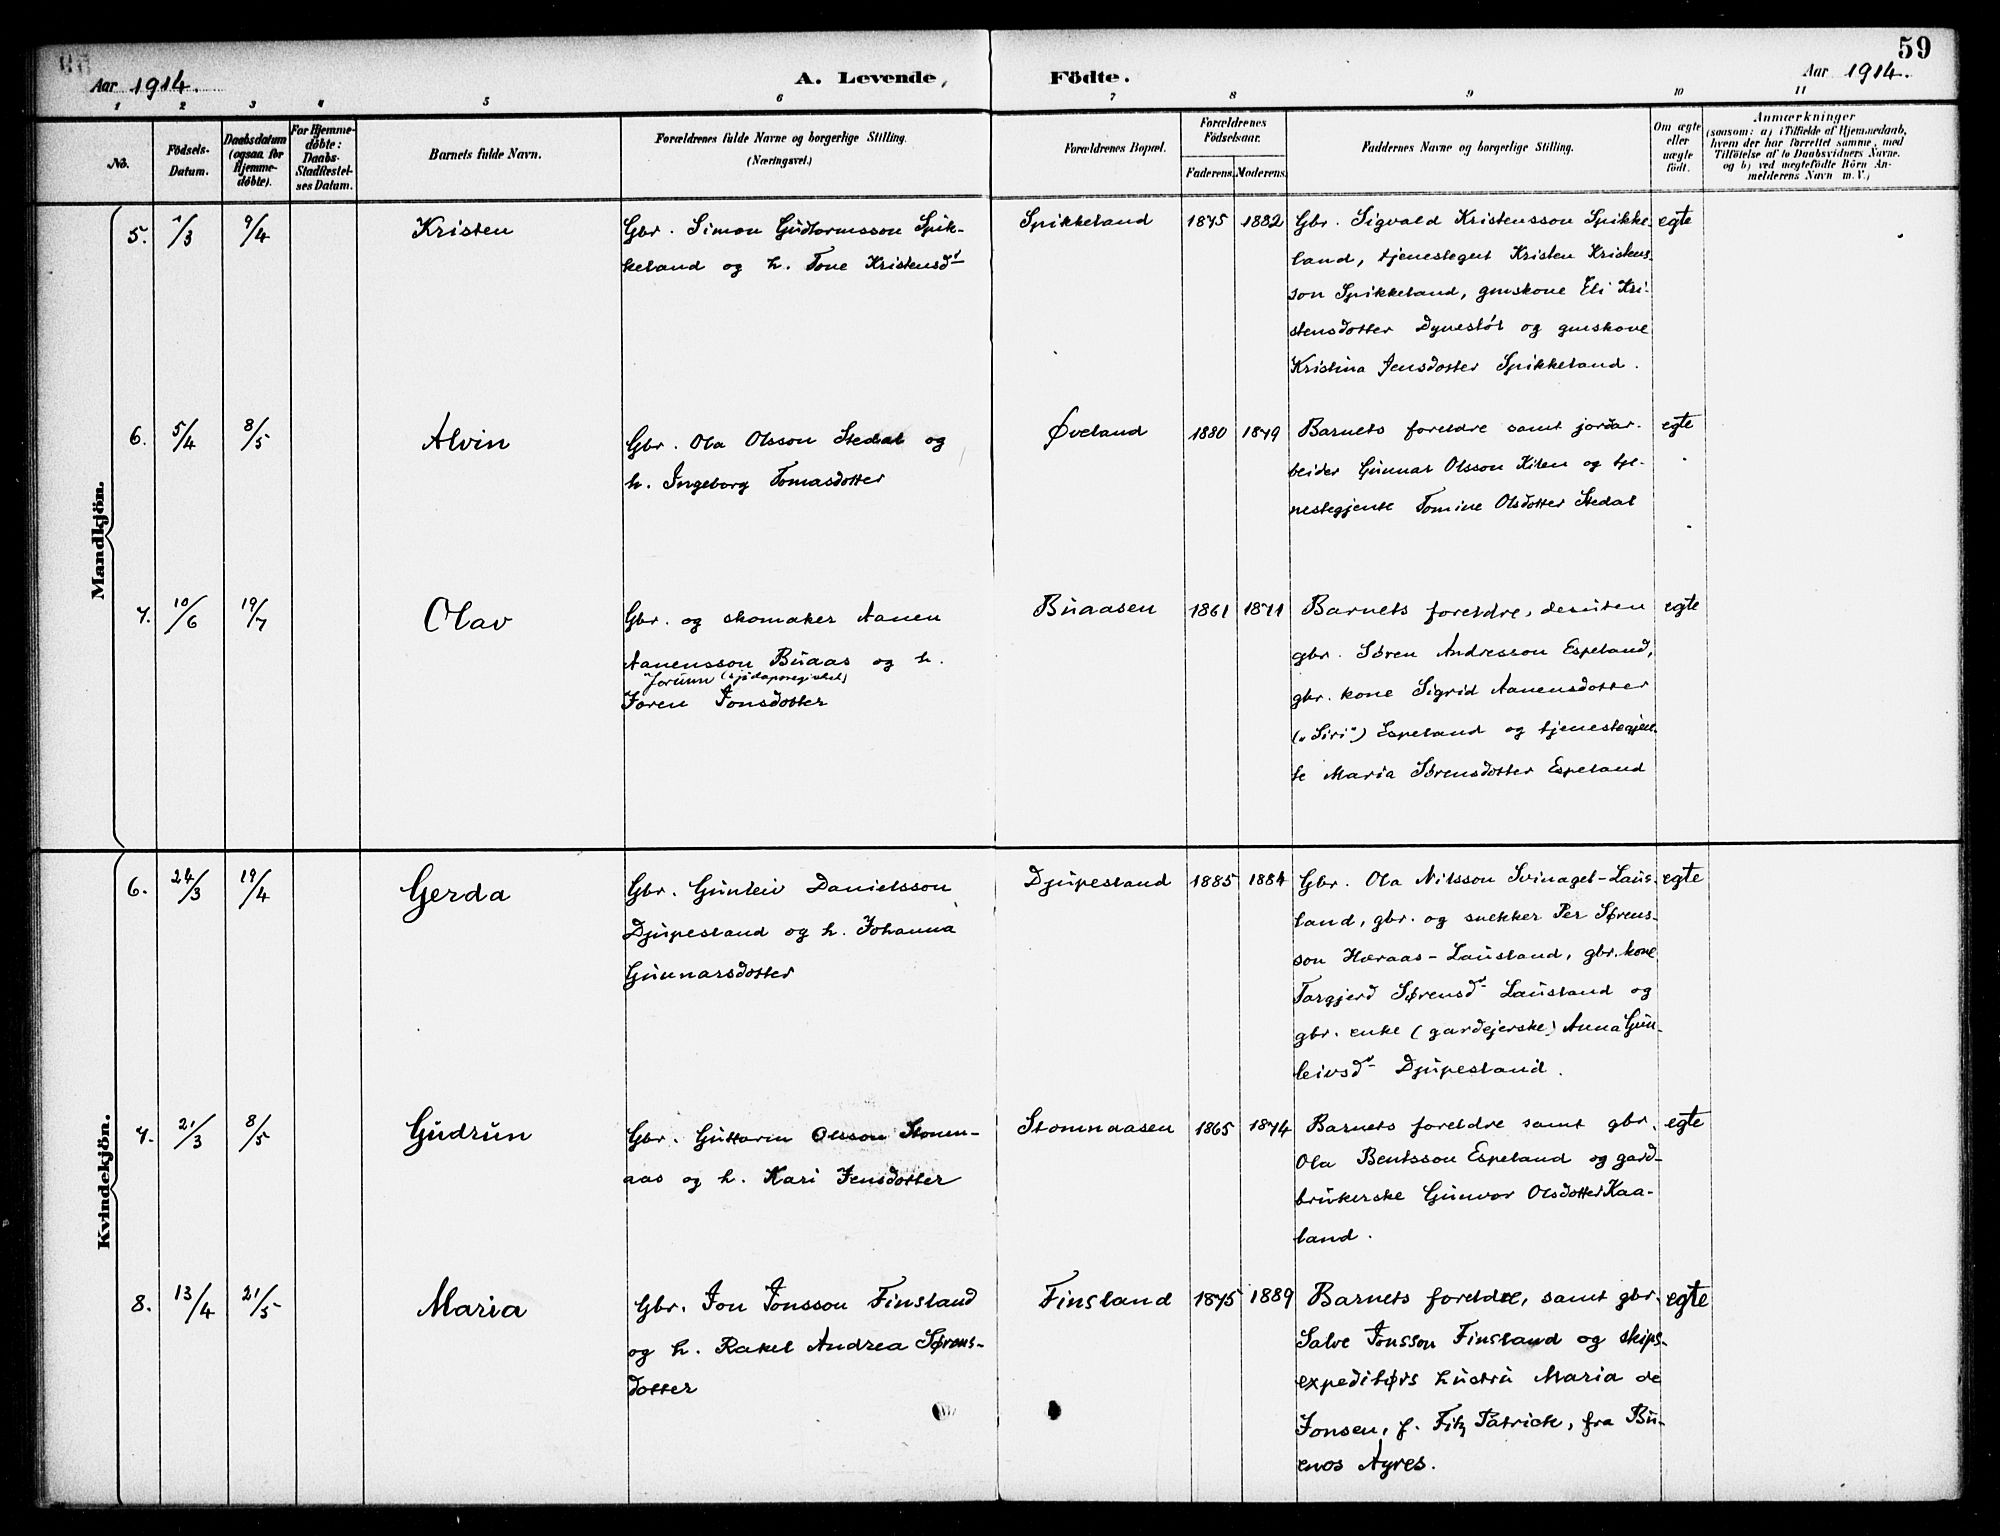 59
Aar 1914.
A. Levende, Födte.
Aar 1914.
1 2 3 4 5 6 7 8 9 10 11
No.
Födsels-
Datum.
Daabsdatum
(ogsaa for
Hjemme-
døbte).
For Hjemme-
døbte:
Daabs-
Stadfæstel-
ses Datum.
Barnets fulde Navn.
Forældrenes fulde Navne og borgerlige Stilling.
(Næringsvei.)
Forældrenes Bopæl.
Forældrenes
Födselsaar.
Faderens. Moderens.
Faddernes Navne og borgerlige Stilling.
Om ægte
eller
uægte
født.
Anmærkninger
(saasom: a) i Tilfælde af Hjemmedaab,
hvem der har forrettet samme, med
Tilføielse af to Daabsvidners Navne.
og b) ved uægtefødte Börn An-
melderens Navn m. V.)
Mandkjön.
5. 1/3 9/4 Kristen
Gbr. Simon Gudtormsson Spik-
keland og h. Tone Kristensd
Spikkeland 1875 1882
Gbr. Sigvald Kristensson Spikke-
land, tjenestegut Kristen Kristens-
son Spikkeland, gmskone Eli Kri-
stensdotter Dynestøl og gmskone
Kristina Jensdotter Spikkeland.
egte
6. 5/4 8/5 Alvin
Gbr. Ola Olsson Stedal og
h. Ingeborg Tomasdotter
Øveland 1880 1879
Barnets foreldre samt jordar-
beider Gunnar Olsson Kilen og tje-
nestegjente Tomine Olsdotter Stedal
egte
7. 10/6 19/7 Olav
Gbr. og skomaker Aanen
Aanensson Buaas og h.
"Jorunn (sjødaporegivlet)
Joren Jonsdotter
Buaasen 1861 1871
Barnets foreldre, desuten
gbr. Søren Andresson Espeland,
gbr. kone Sigrid Aanensdotter
("Siri") Espeland og tjenestegjen-
te Maria Sørensdotter Espeland
egte
Kvindekjön.
6. 24/3 19/4 Gerda
Gbr. Gunleiv Danielsson
Djupesland og h. Johanna
Gunnarsdotter
Djupesland 1885 1884
Gbr. Ola Nilsson Svinagel-Laus-
land, gbr. og snekker Per Sørens-
son Høraas-Lausland, gbr. kone
Targjerd Sørensd Lausland og
gbr. enke (gardejerske) Anna Gun-
leivsd Djupesland.
egte
7. 21/3 8/5 Gudrun
Gbr. Guttorm Olsson Stomn-
aas og h. Kari Jensdotter
Stomnaasen 1865 1874
Barnets foreldre samt gbr.
Ola Bentsson Espeland og gard-
brukerske Gunvor Olsdotter Kaa-
land.
egte
8. 13/4 21/5 Maria
Gbr. Jon Jonsson Finsland
og h. Rakel Andrea Sørens-
dotter
Finsland 1875 1889
Barnets foreldre, samt gbr.
Salve Jonsson Finsland og skips-
expeditørs hustru Maria de
Jonsen, f. Fitz Patrick, fra Bu-
enos Ayres.
egte